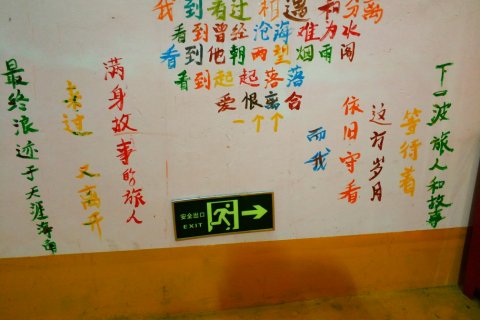 我到者过相遇和分离
看到曾经沧海难为水
看到他朝两望烟雨阔
看到起起落落
爱恨离合
一个个
满身故事的旅人
来过 又离开
最终浪迹于天涯海角
而我
依旧守着
这方岁月
等待着
下一波旅人和故事
安全出口
EXIT